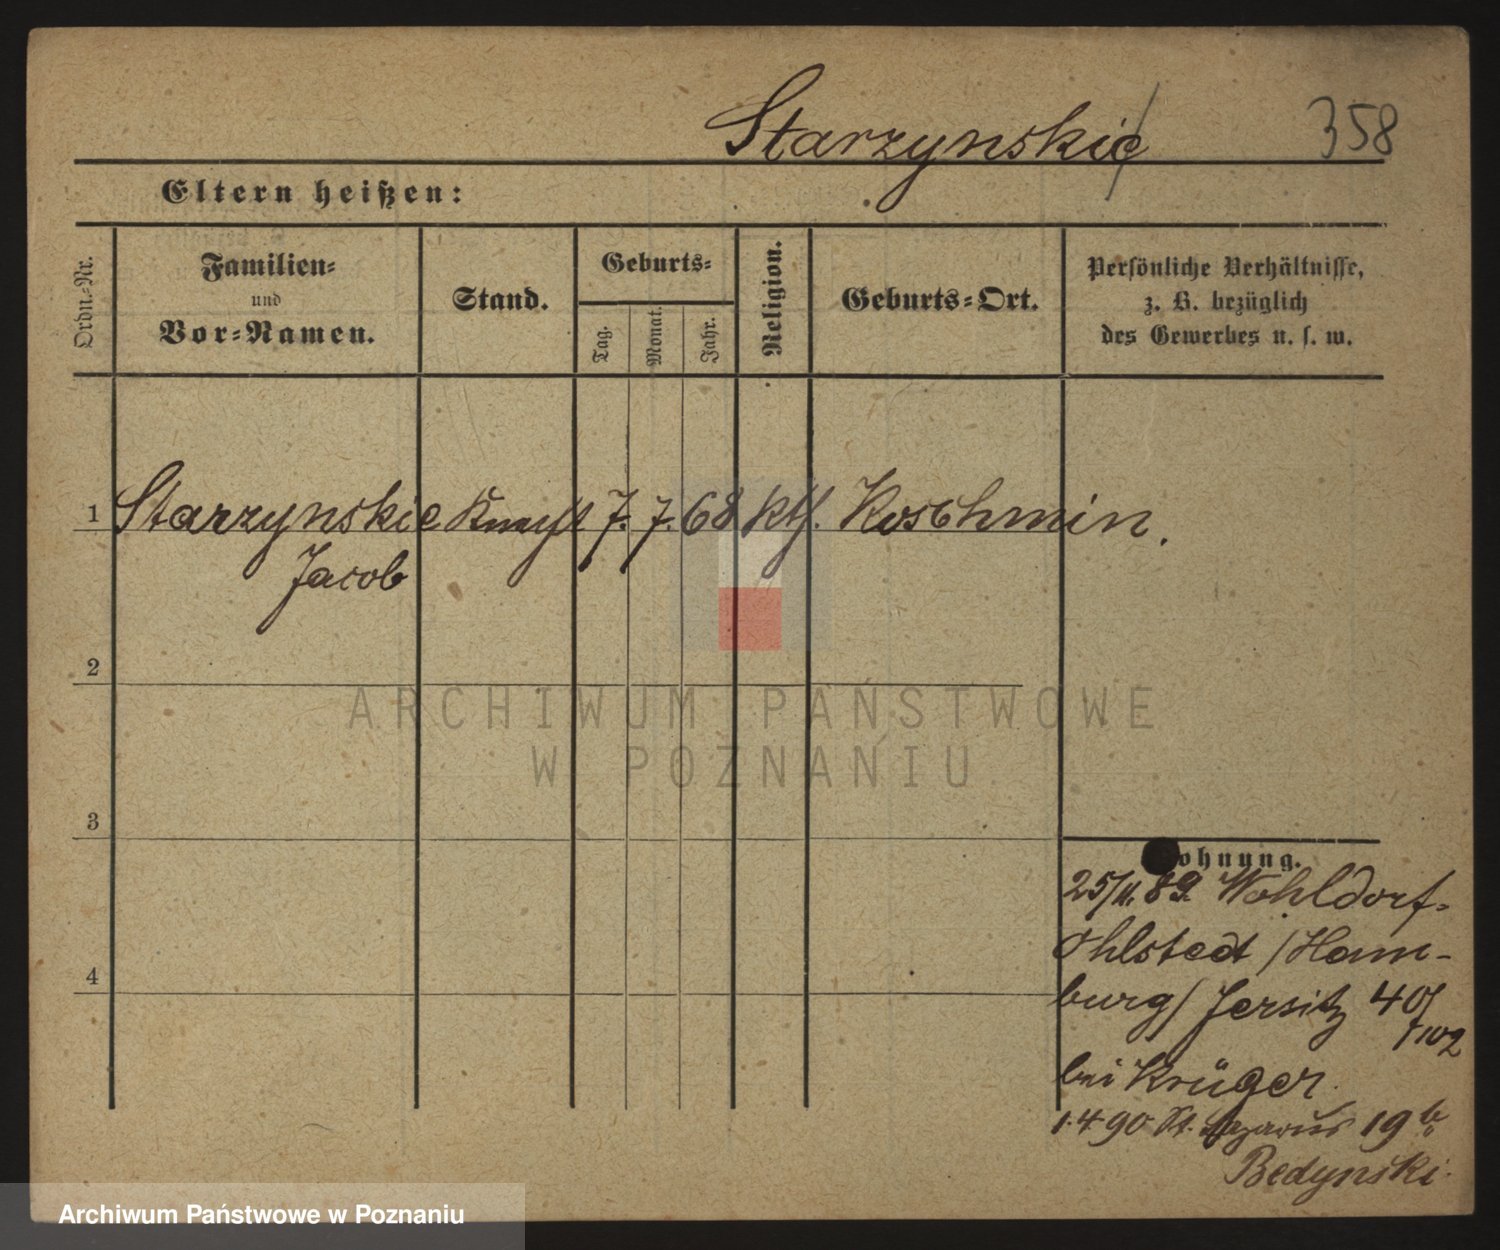 Starzynskie
358
Eltern heißen:
Ordn.-Nr.
Familien-
und
Vor-Namen.
Stand.
Geburts-
Tag.
Monat.
Jahr.
Religion.
Geburts-Ort.
Persönliche Verhältnisse,
z. B. bezüglich
des Gewerbes u. s. w.
1 Starzynskie Knecht 7. 7. 68 kth. Koschmin.
Jacob
2
ARCHIWUM PAŃSTWOWE
W POZNANIU
3
ohnung.
25/11. 89. Wohldorf-
Ohlstedt /Ham-
4
burg/ Jersitz 40/
102
bei Krüger.
1.4 90 St. Lazarus 19 b
Bedynski.
Archiwum Państwowe w Poznaniu